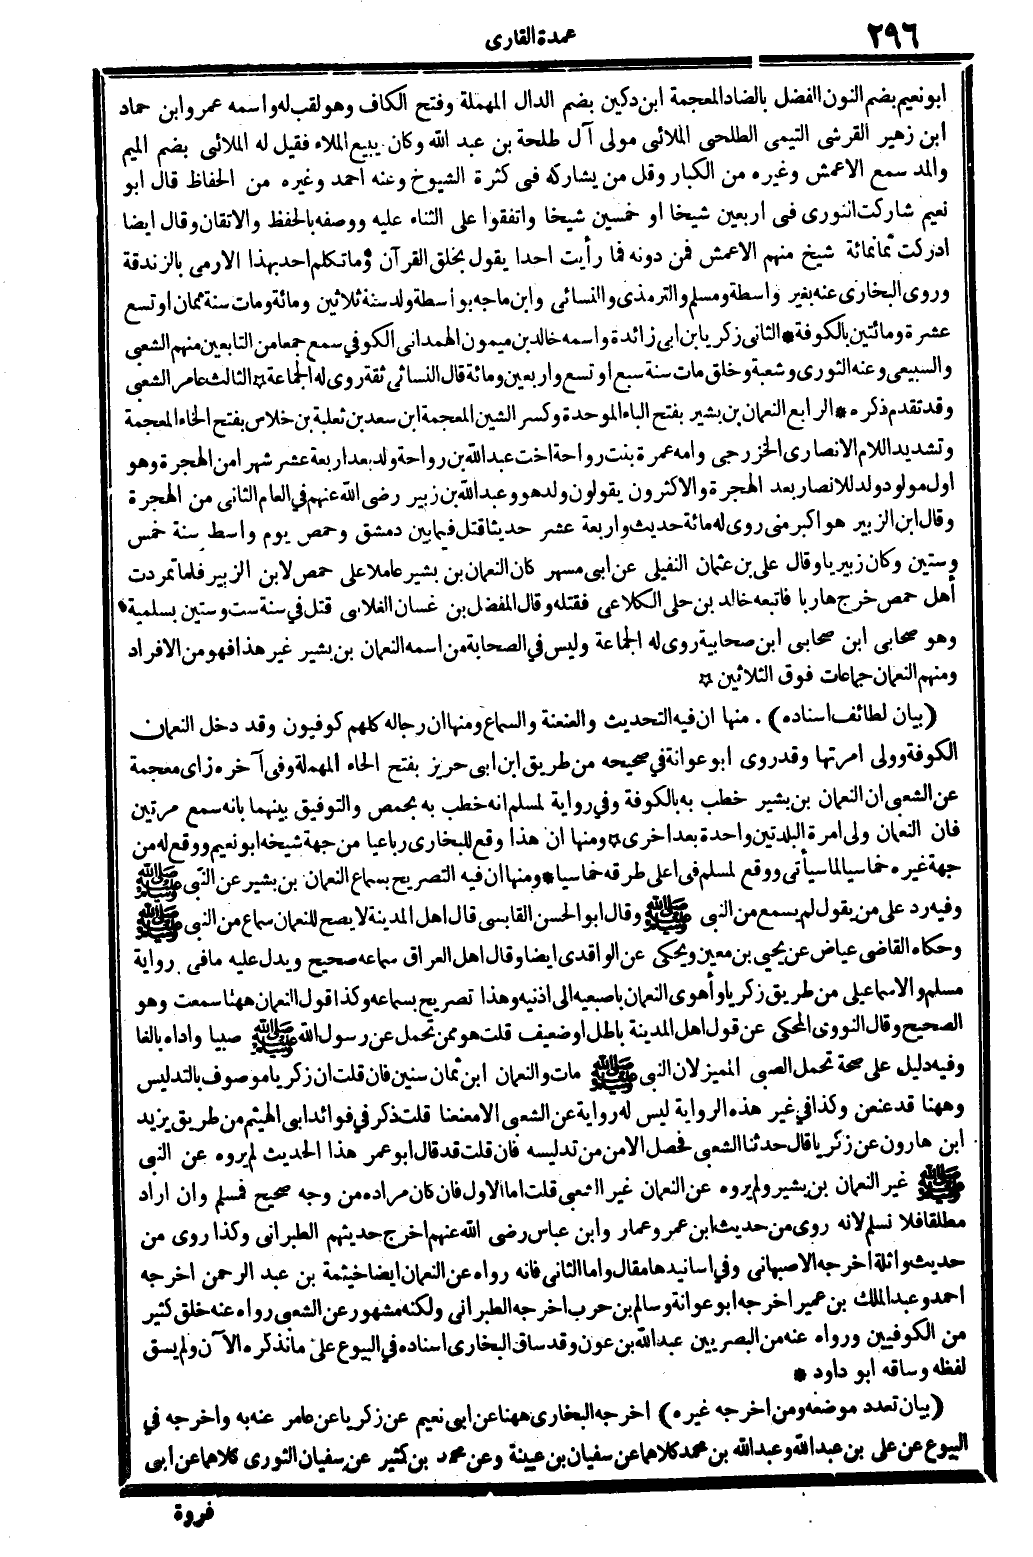 ٢٩٦
عمدة القارى
ابو نعيم بضم النون الفضل بالضاد المعجمة ابن دكين بضم الدال المهملة وفتح الكاف وهو لقب له واسمه عمرو ابن حماد
ابن زهير القرشى التيمى الطلحى الملائى مولى آل طلحة بن عبد الله وكان يبيع الملاء فقيل له الملائى بضم الميم
والمد سمع الاعمش وغيره من الكبار وقل من يشاركه فى كثرة الشيوخ وعنه احمد وغيره من الحفاظ قال ابو
نعيم شاركت الثورى فى اربعين شيخا او خمسين شيخا واتفقوا على الثناء عليه ووصفه بالحفظ والاتقان وقال ايضا
ادركت ثمانمائة شيخ منهم الاعمش فمن دونه فما رأيت احدا يقول بخلق القرآن وما تكلم احد بهذا الا رمى بالزندقة
وروى البخارى عنه بغير واسطة ومسلم والترمذى والنسائى وابن ماجه بواسطة ولد سنة ثلاثين ومائة ومات سنة ثمان او تسع
عشرة ومائتين بالكوفة * الثانى زكريا بن ابى زائدة واسمه خالد بن ميمون الهمدانى الكوفي سمع جمعا من التابعين منهم الشعبى
والسبيعى وعنه الثورى وشعبة وخلق مات سنة سبع او تسع واربعين ومائة قال النسائى ثقة روى له الجماعة * الثالث عامر الشعبى
وقد تقدم ذكره * الرابع النعمان بن بشير بفتح الباء الموحدة وكسر الشين المعجمة ابن سعد بن ثعلبة بن خلاس بفتح الخاء المعجمة
وتشديد اللام الانصارى الخزرجى وامه عمرة بنت رواحة اخت عبد الله بن رواحة ولد بعد اربعة عشر شهرا من الهجرة وهو
اول مولود ولد للانصار بعد الهجرة والاكثرون يقولون ولد هو وعبد الله بن زبير رضى الله عنهم في العام الثانى من الهجرة
وقال ابن الزبير هو اكبر منى روى له مائة حديث واربعة عشر حديثا قتل فيما بين دمشق وحمص يوم واسط سنة خمس
وستين وكان زبيريا وقال على بن عثمان النفيلى عن ابى مسهر كان النعمان بن بشير عاملا على حمص لابن الزبير فلما تمردت
أهل حمص خرج هاربا فاتبعه خالد بن حلى الكلاعى فقتله وقال المفضل بن غسان الغلابى قتل في سنة ست وستين بسلمية *
وهو صحابى ابن صحابى ابن صحابية روى له الجماعة وليس في الصحابة من اسمه النعمان بن بشير غير هذا فهو من الافراد
ومنهم النعمان جماعات فوق الثلاثين *
(بيان لطائف اسناده) . منها ان فيه التحديث والعنعنة والسماع ومنها ان رجاله كلهم كوفيون وقد دخل النعمان
الكوفة وولى امرتها وقد روى ابو عوانة في صحيحه من طريق ابن ابى حريز بفتح الحاء المهملة وفى آخره زاى معجمة
عن الشعبى ان النعمان بن بشير خطب به بالكوفة وفي رواية لمسلم انه خطب به بحمص والتوفيق بينهما بانه سمع مرتين
فان النعمان ولى امرة البلدتين واحدة بعد اخرى * ومنها ان هذا وقع للبخارى رباعيا من جهة شيخه ابو نعيم ووقع له من
جهة غيره خماسيا لما سيأتى ووقع لمسلم فى اعلى طرقه خماسيا * ومنها ان فيه التصريح بسماع النعمان بن بشير عن النبى ﷺ
وفيه رد على من يقول لم يسمع من النبى ﷺ وقال ابو الحسن القابسى قال اهل المدينة لا يصح للنعمان سماع من النبى ﷺ
وحكاه القاضى عياض عن يحيى بن معين ويحكى عن الواقدى ايضا وقال اهل العراق سماعه صحيح ويدل عليه ما فى رواية
مسلم والاسماعيلى من طريق زكريا وأهوى النعمان باصبعيه الى اذنيه وهذا تصريح بسماعه وكذا قول النعمان ههنا سمعت وهو
الصحيح وقال النووى المحكى عن قول اهل المدينة باطل او ضعيف قلت هو ممن تحمل عن رسول الله ﷺ صبيا واداه بالغا
وفيه دليل على صحة تحمل الصبى المميز لان النبى ﷺ مات والنعمان ابن ثمان سنين فان قلت ان زكريا موصوف بالتدليس
وههنا قد عنعن وكذا في غير هذه الرواية ليس له رواية عن الشعبى الا معنعنا قلت ذكر في فوائد ابى الهيثم من طريق يزيد
ابن هارون عن زكريا قال حدثنا الشعبى فحصل الامن من تدليسه فان قلت قد قال ابو عمر هذا الحديث لم يروه عن النبى
ﷺ غير النعمان بن بشير ولم يروه عن النعمان غير الشعبى قلت اما الاول فان كان مراده من وجه صحيح فمسلم وان اراد
مطلقا فلا نسلم لانه روى من حديث ابن عمر وعمار وابن عباس رضى الله عنهم اخرج حديثهم الطبرانى وكذا روى من
حديث واثلة اخرجه الاصبهانى وفي اسانيدها مقال واما الثانى فانه رواه عن النعمان ايضا خيثمة بن عبد الرحمن اخرجه
احمد وعبد الملك بن عمير اخرجه ابو عوانة وسالم بن حرب اخرجه الطبرانى ولكنه مشهور عن الشعبى رواه عنه خلق كثير
من الكوفيين ورواه عنه من البصريين عبد الله بن عون وقد ساق البخارى اسناده في البيوع على ما نذكره الآن ولم يسق
لفظه وساقه ابو داود *
(بيان تعدد موضعه ومن اخرجه غيره) اخرجه البخارى ههنا عن ابى نعيم عن زكريا عن عامر عنه به واخرجه في
البيوع عن على بن عبد الله وعبد الله بن محمد كلاهما عن سفيان بن عيينة وعن محمد بن كثير عن سفيان الثورى كلاهما عن أبى
فروة